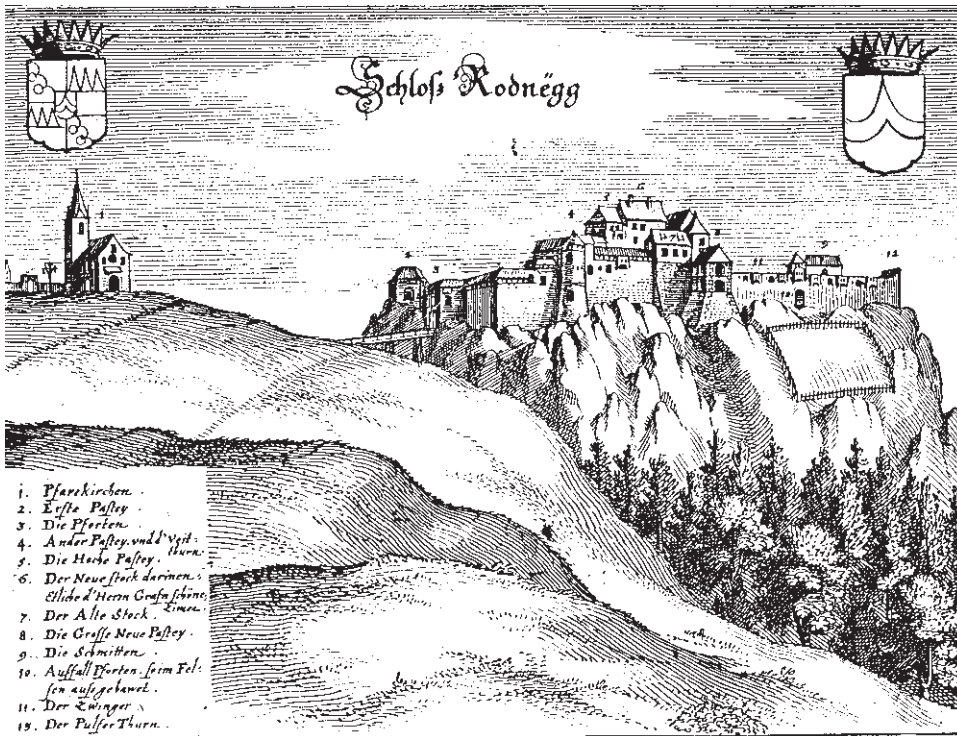 Schloß Rodnëgg
1. Pfarrkirchen.
2. Erste Pastey
3. Die Pforten.
4. Ander Pastey. vnd d' Veit-
thurn.
5. Die Hoche Pastey.
6. Der Neue stock darinen
Etliche d' Herrn Grafn schöne
Zimer.
7. Der Alte Stock.
8. Die Grosse Neue Pastey.
9. Die Schmitten.
10. Außfall Pforten. so im Fel-
sen aussgehawet.
11. Der Zwinger
12. Der Pulfer Thurn.